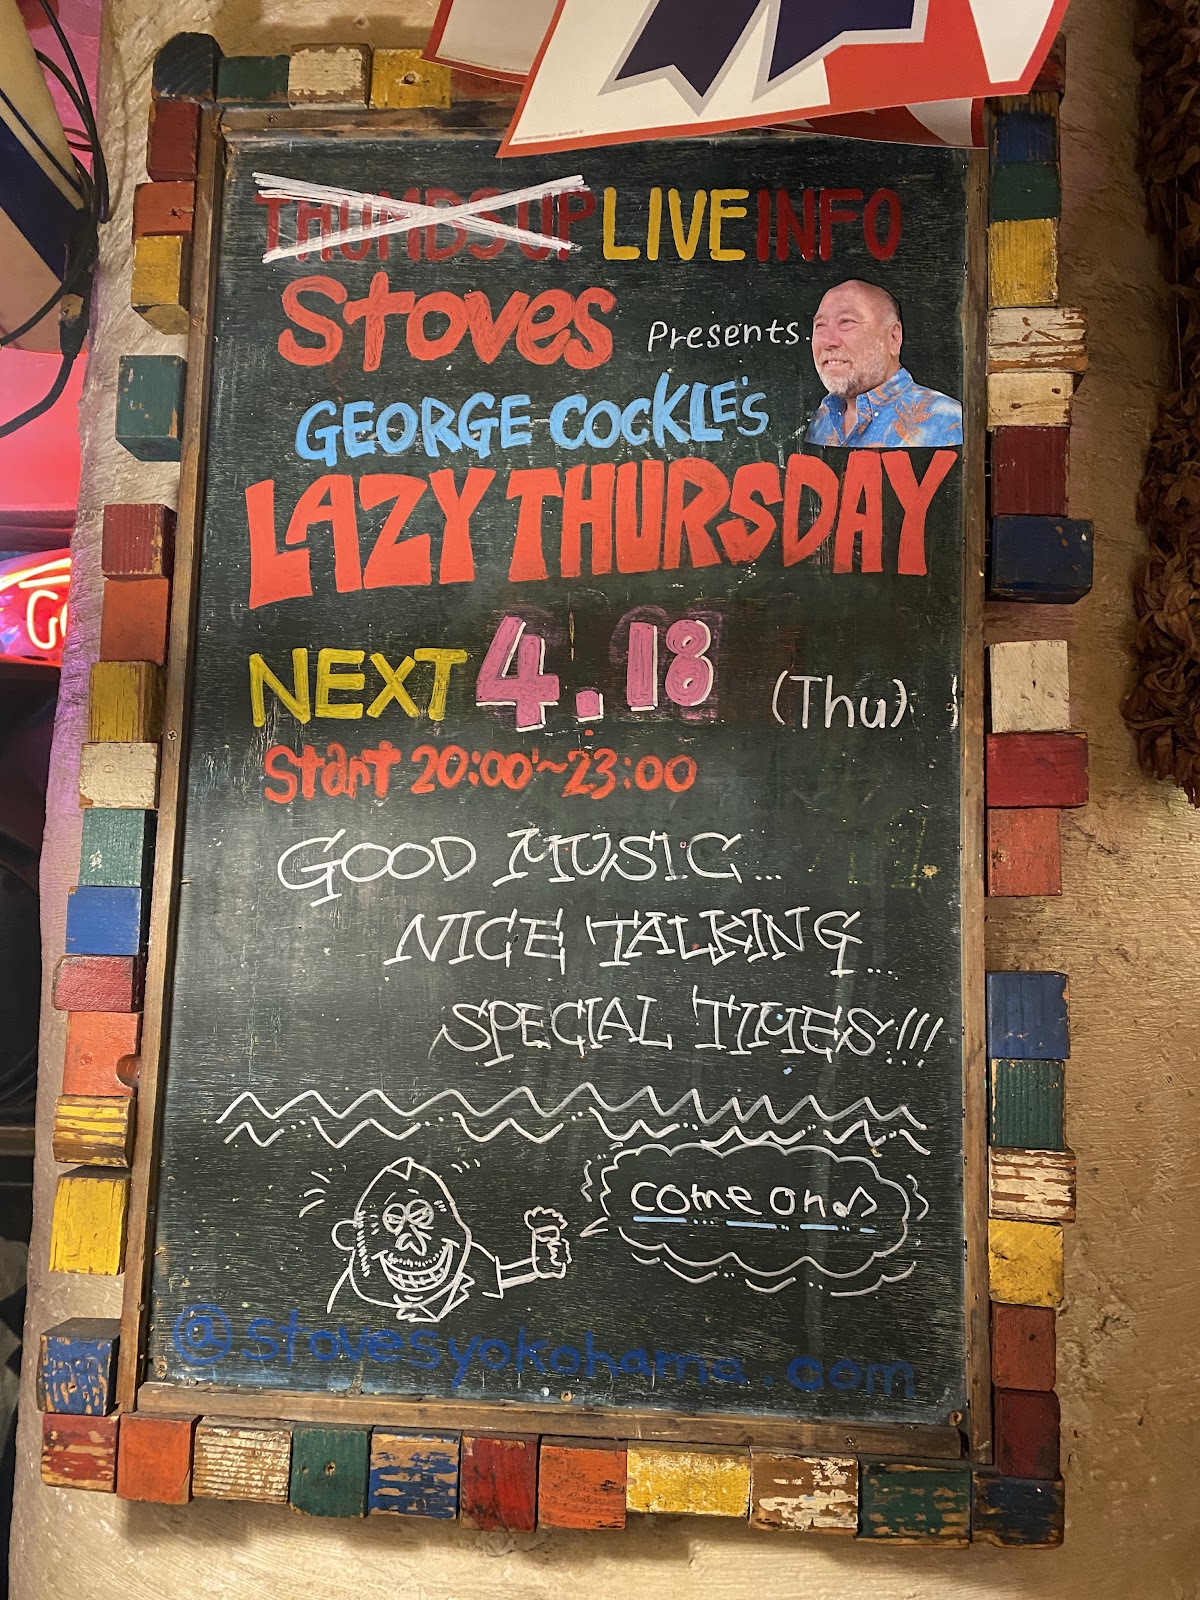 THUMBS UP LIVE INFO
Stoves Presents.
GEORGE COCKLE'S
LAZY THURSDAY
NEXT 4.18 (Thu)
Start 20:00~23:00
GOOD MUSIC...
NICE TALKING...
SPECIAL TIMES!!!
come on♪
@stovesyokohama.com